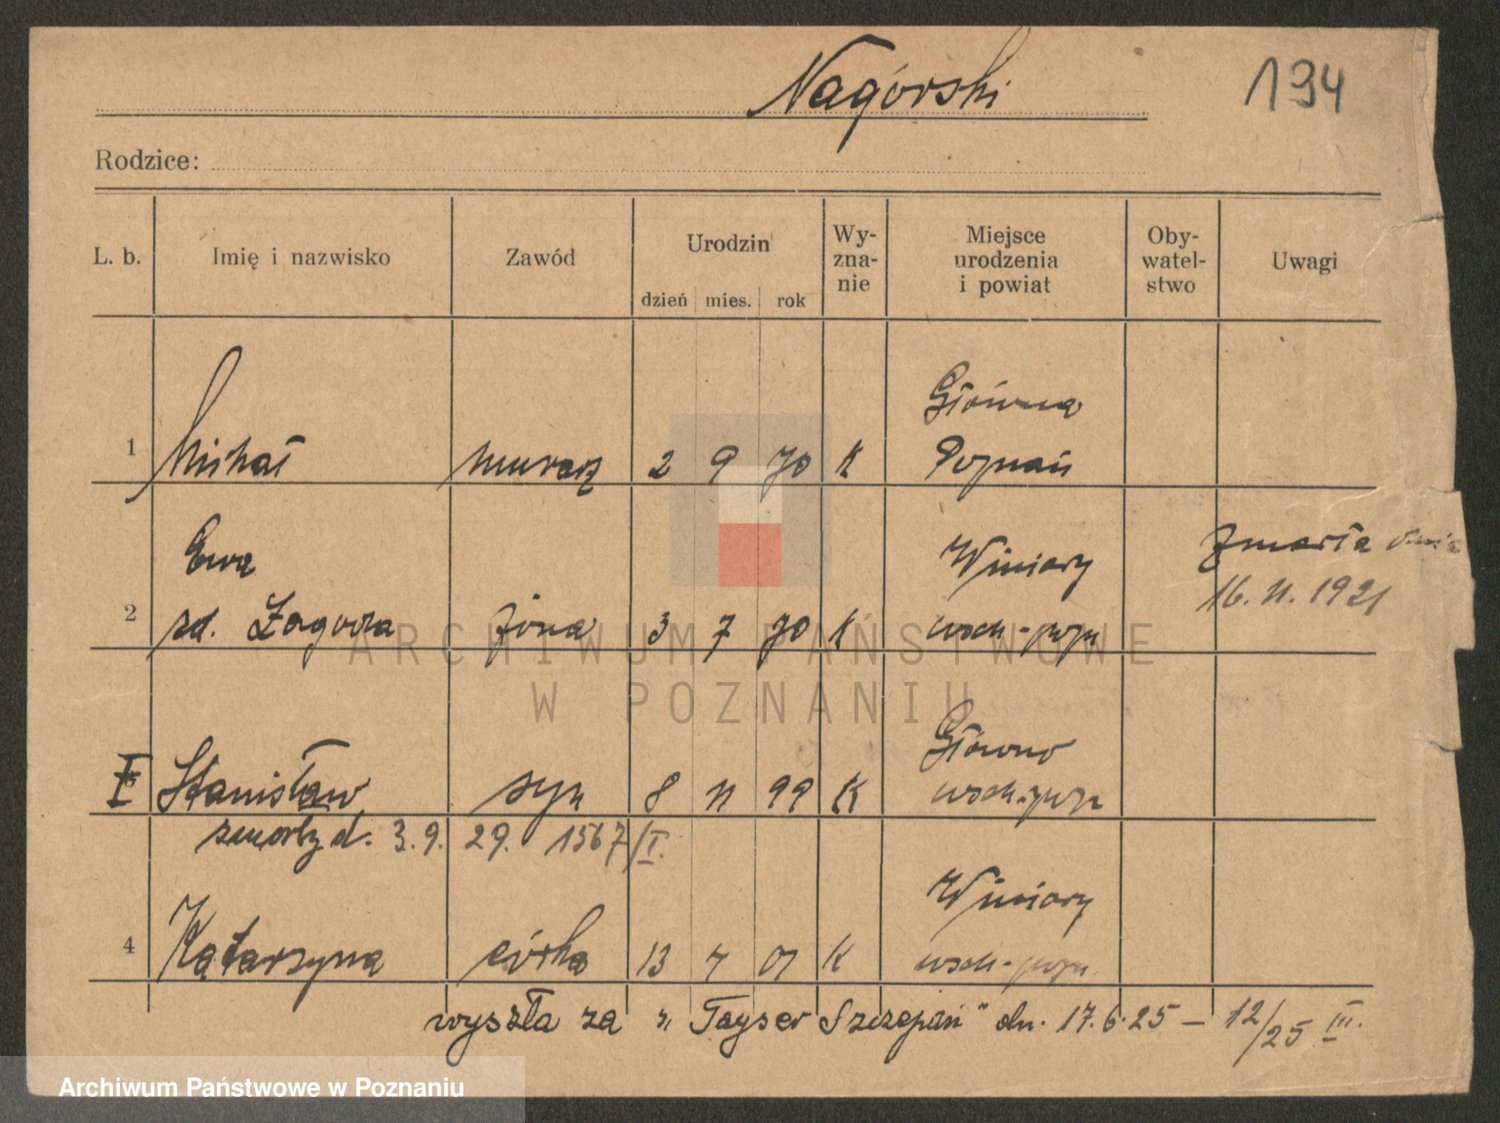 Nagórski
194
Rodzice:
L. b. Imię i nazwisko Zawód Urodzin dzień mies. rok Wy-zna-nie Miejsce urodzenia i powiat Oby-watel-stwo Uwagi
Główna
1 Michał murarz 2 9 70 K Poznań
Ewa Winiary zmarła dnia
16. 11. 1921
2 zd. Zagocka żona 3 7 70 K wsch-pozn
Główno
I Stanisław syn 8 11 99 K wsch-pozn
zmarły d. 3.9. 29. 1567/I.
Winiary
4 Katarzyna córka 13 4 01 K wsch-pozn.
wyszła za "Tayser Szczepań" dn. 17.6.25 – 12/25 III.
ARCHIWUM PAŃSTWOWE
W POZNANIU
Archiwum Państwowe w Poznaniu